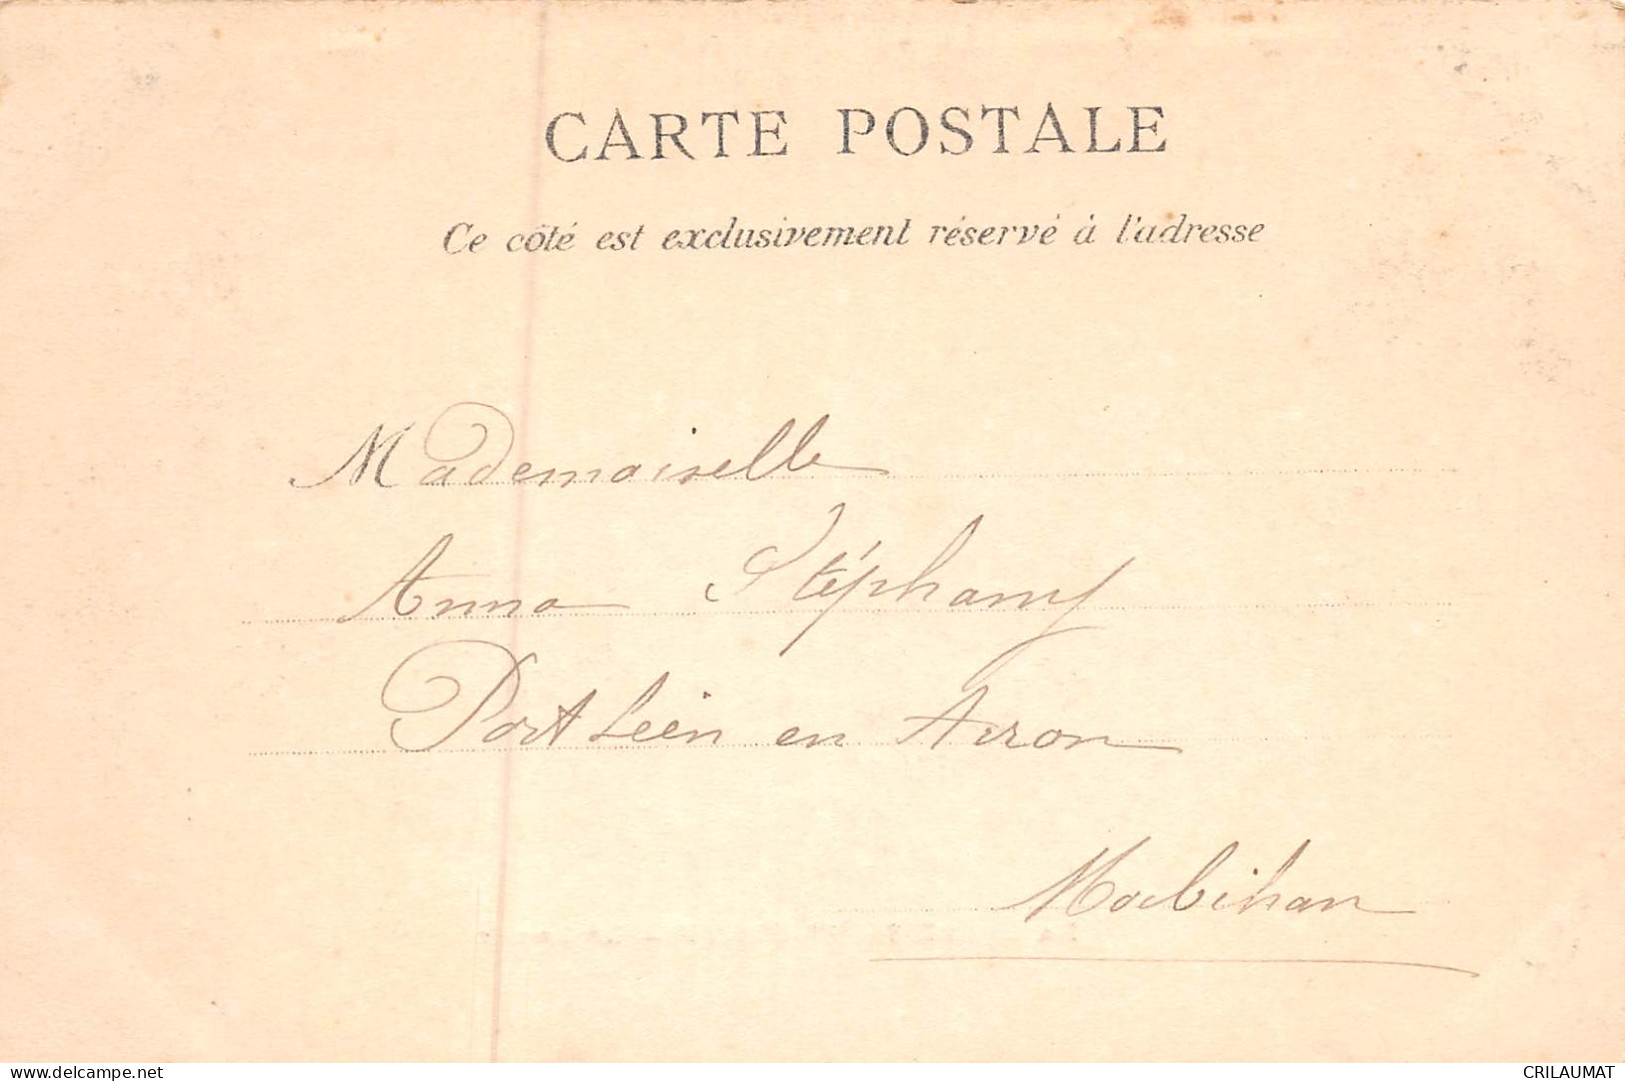 CARTE POSTALE
Ce côté est exclusivement réservé à l'adresse
Mademoiselle
Anna Stéphany
Port Leën en Arzon
Morbihan
delcampe.net
CRILAUMAT